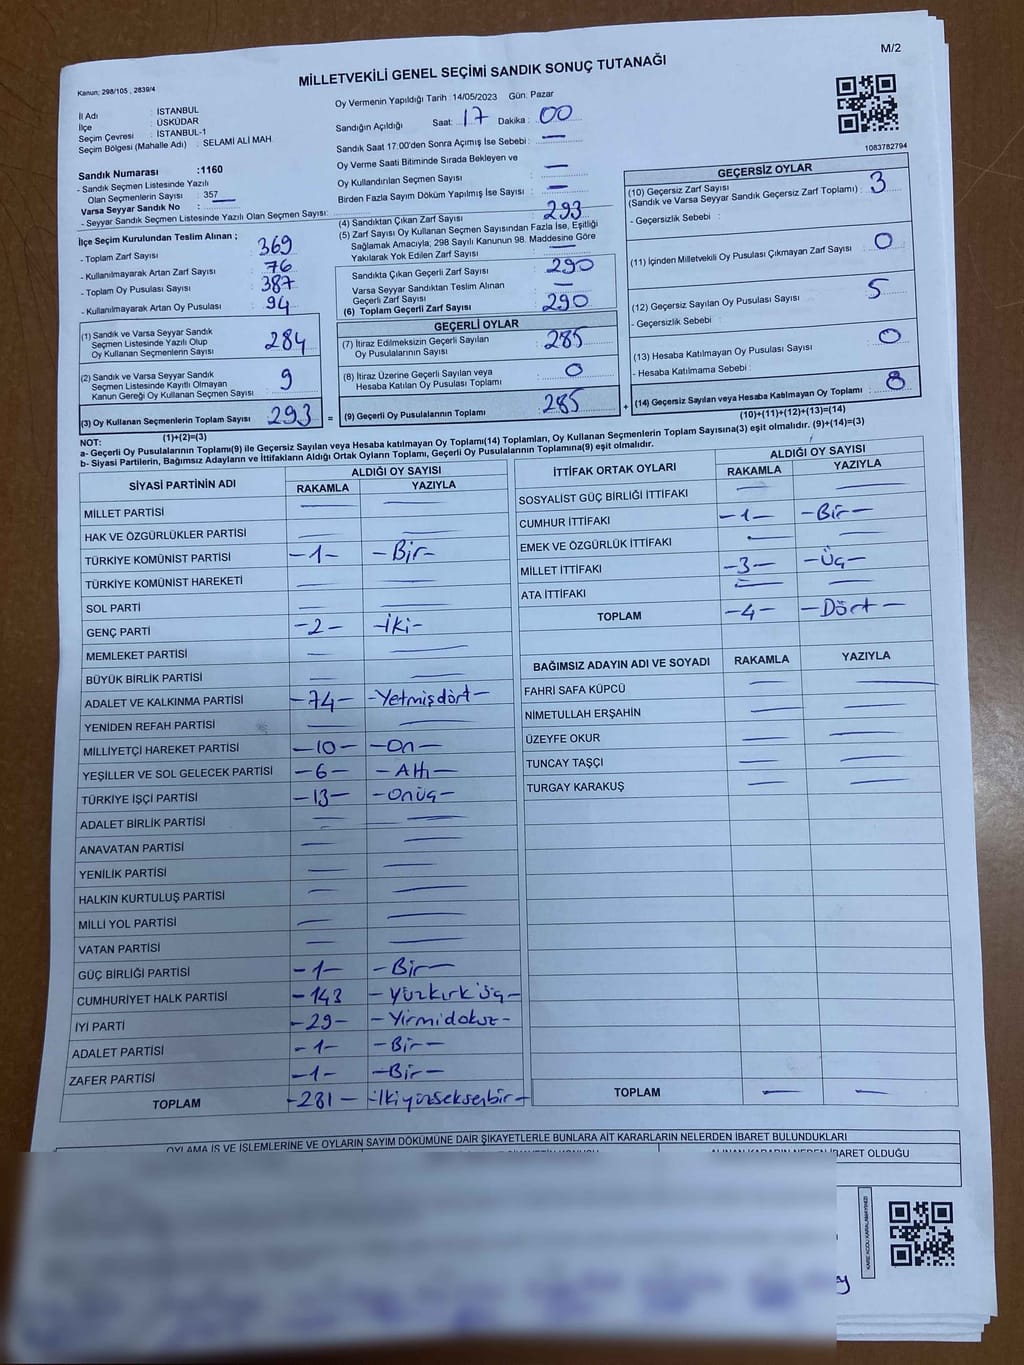 M/2
MİLLETVEKİLİ GENEL SEÇİMİ SANDIK SONUÇ TUTANAĞI
Kanun; 298/105 , 2839/4
İl Adı : İSTANBUL
İlçe : ÜSKÜDAR
Seçim Çevresi : İSTANBUL-1
Seçim Bölgesi (Mahalle Adı) : SELAMİ ALİ MAH
Sandık Numarası :1160
- Sandık Seçmen Listesinde Yazılı
Olan Seçmenlerin Sayısı : 357
Varsa Seyyar Sandık No :
- Seyyar Sandık Seçmen Listesinde Yazılı Olan Seçmen Sayısı:
Oy Vermenin Yapıldığı Tarih : 14/05/2023 Gün: Pazar
Sandığın Açıldığı Saat: 17 Dakika : 00
Sandık Saat 17.00'den Sonra Açımış İse Sebebi : —
Oy Verme Saati Bitiminde Sırada Bekleyen ve
Oy Kullandırılan Seçmen Sayısı : —
Birden Fazla Sayım Döküm Yapılmış İse Sayısı : —
1083782794
İlçe Seçim Kurulundan Teslim Alınan ;
- Toplam Zarf Sayısı : 369
- Kullanılmayarak Artan Zarf Sayısı : 76
- Toplam Oy Pusulası Sayısı : 387
- Kullanılmayarak Artan Oy Pusulası : 94
(1) Sandık ve Varsa Seyyar Sandık
Seçmen Listesinde Yazılı Olup
Oy Kullanan Seçmenlerin Sayısı : 284
(2) Sandık ve Varsa Seyyar Sandık
Seçmen Listesinde Kayıtlı Olmayan
Kanun Gereği Oy Kullanan Seçmen Sayısı : 9
(3) Oy Kullanan Seçmenlerin Toplam Sayısı : 293 =
(1)+(2)=(3)
(4) Sandıktan Çıkan Zarf Sayısı : 293
(5) Zarf Sayısı Oy Kullanan Seçmen Sayısından Fazla İse, Eşitliği
Sağlamak Amacıyla, 298 Sayılı Kanunun 98. Maddesine Göre
Yakılarak Yok Edilen Zarf Sayısı : —
Sandıkta Çıkan Geçerli Zarf Sayısı : 290
Varsa Seyyar Sandıktan Teslim Alınan
Geçerli Zarf Sayısı : —
(6) Toplam Geçerli Zarf Sayısı : 290
GEÇERLİ OYLAR
(7) İtiraz Edilmeksizin Geçerli Sayılan
Oy Pusulalarının Sayısı : 285
(8) İtiraz Üzerine Geçerli Sayılan veya
Hesaba Katılan Oy Pusulası Toplamı : 0
(9) Geçerli Oy Pusulalarının Toplamı : 285 +
GEÇERSİZ OYLAR
(10) Geçersiz Zarf Sayısı
(Sandık ve Varsa Seyyar Sandık Geçersiz Zarf Toplamı) : 3
- Geçersizlik Sebebi :
(11) İçinden Milletvekili Oy Pusulası Çıkmayan Zarf Sayısı : 0
(12) Geçersiz Sayılan Oy Pusulası Sayısı : 5
- Geçersizlik Sebebi :
(13) Hesaba Katılmayan Oy Pusulası Sayısı : 0
- Hesaba Katılmama Sebebi :
(14) Geçersiz Sayılan veya Hesaba Katılmayan Oy Toplamı : 8
(10)+(11)+(12)+(13)=(14)
NOT:
a- Geçerli Oy Pusulasının Toplamı(9) ile Geçersiz Sayılan veya Hesaba katılmayan Oy Toplamı(14) Toplamları, Oy Kullanan Seçmenlerin Toplam Sayısına(3) eşit olmalıdır. (9)+(14)=(3)
b- Siyasi Partilerin, Bağımsız Adayların ve İttifakların Aldığı Ortak Oyların Toplamı, Geçerli Oy Pusulasının Toplamına(9) eşit olmalıdır.
SİYASİ PARTİNİN ADI ALDIĞI OY SAYISI
RAKAMLA YAZIYLA
MİLLET PARTİSİ — —
HAK VE ÖZGÜRLÜKLER PARTİSİ — —
TÜRKİYE KOMÜNİST PARTİSİ -1- -Bir-
TÜRKİYE KOMÜNİST HAREKETİ — —
SOL PARTİ — —
GENÇ PARTİ -2- -İki-
MEMLEKET PARTİSİ — —
BÜYÜK BİRLİK PARTİSİ — —
ADALET VE KALKINMA PARTİSİ -74- -Yetmişdört-
YENİDEN REFAH PARTİSİ — —
MİLLİYETÇİ HAREKET PARTİSİ -10- -On-
YEŞİLLER VE SOL GELECEK PARTİSİ -6- -Altı-
TÜRKİYE İŞÇİ PARTİSİ -13- -Onüç-
ADALET BİRLİK PARTİSİ — —
ANAVATAN PARTİSİ — —
YENİLİK PARTİSİ — —
HALKIN KURTULUŞ PARTİSİ — —
MİLLİ YOL PARTİSİ — —
VATAN PARTİSİ — —
GÜÇ BİRLİĞİ PARTİSİ -1- -Bir-
CUMHURİYET HALK PARTİSİ -143 -Yüzkırküç-
İYİ PARTİ -29- -Yirmidokuz-
ADALET PARTİSİ -1- -Bir-
ZAFER PARTİSİ -1- -Bir-
TOPLAM -281- -İkiyüzseksenbir-
İTTİFAK ORTAK OYLARI ALDIĞI OY SAYISI
RAKAMLA YAZIYLA
SOSYALİST GÜÇ BİRLİĞİ İTTİFAKI — —
CUMHUR İTTİFAKI -1- -Bir-
EMEK VE ÖZGÜRLÜK İTTİFAKI — —
MİLLET İTTİFAKI -3- -Üç-
ATA İTTİFAKI — —
TOPLAM -4- -Dört-
BAĞIMSIZ ADAYIN ADI VE SOYADI RAKAMLA YAZIYLA
FAHRİ SAFA KÜPCÜ — —
NİMETULLAH ERŞAHİN — —
ÜZEYFE OKUR — —
TUNCAY TAŞÇI — —
TURGAY KARAKUŞ — —
TOPLAM — —
OYLAMA İŞ VE İŞLEMLERİNE VE OYLARIN SAYIM DÖKÜMÜNE DAİR ŞİKAYETLERLE BUNLARA AİT KARARLARIN NELERDEN İBARET BULUNDUKLARI
ALINAN KARARIN NEDEN İBARET OLDUĞU